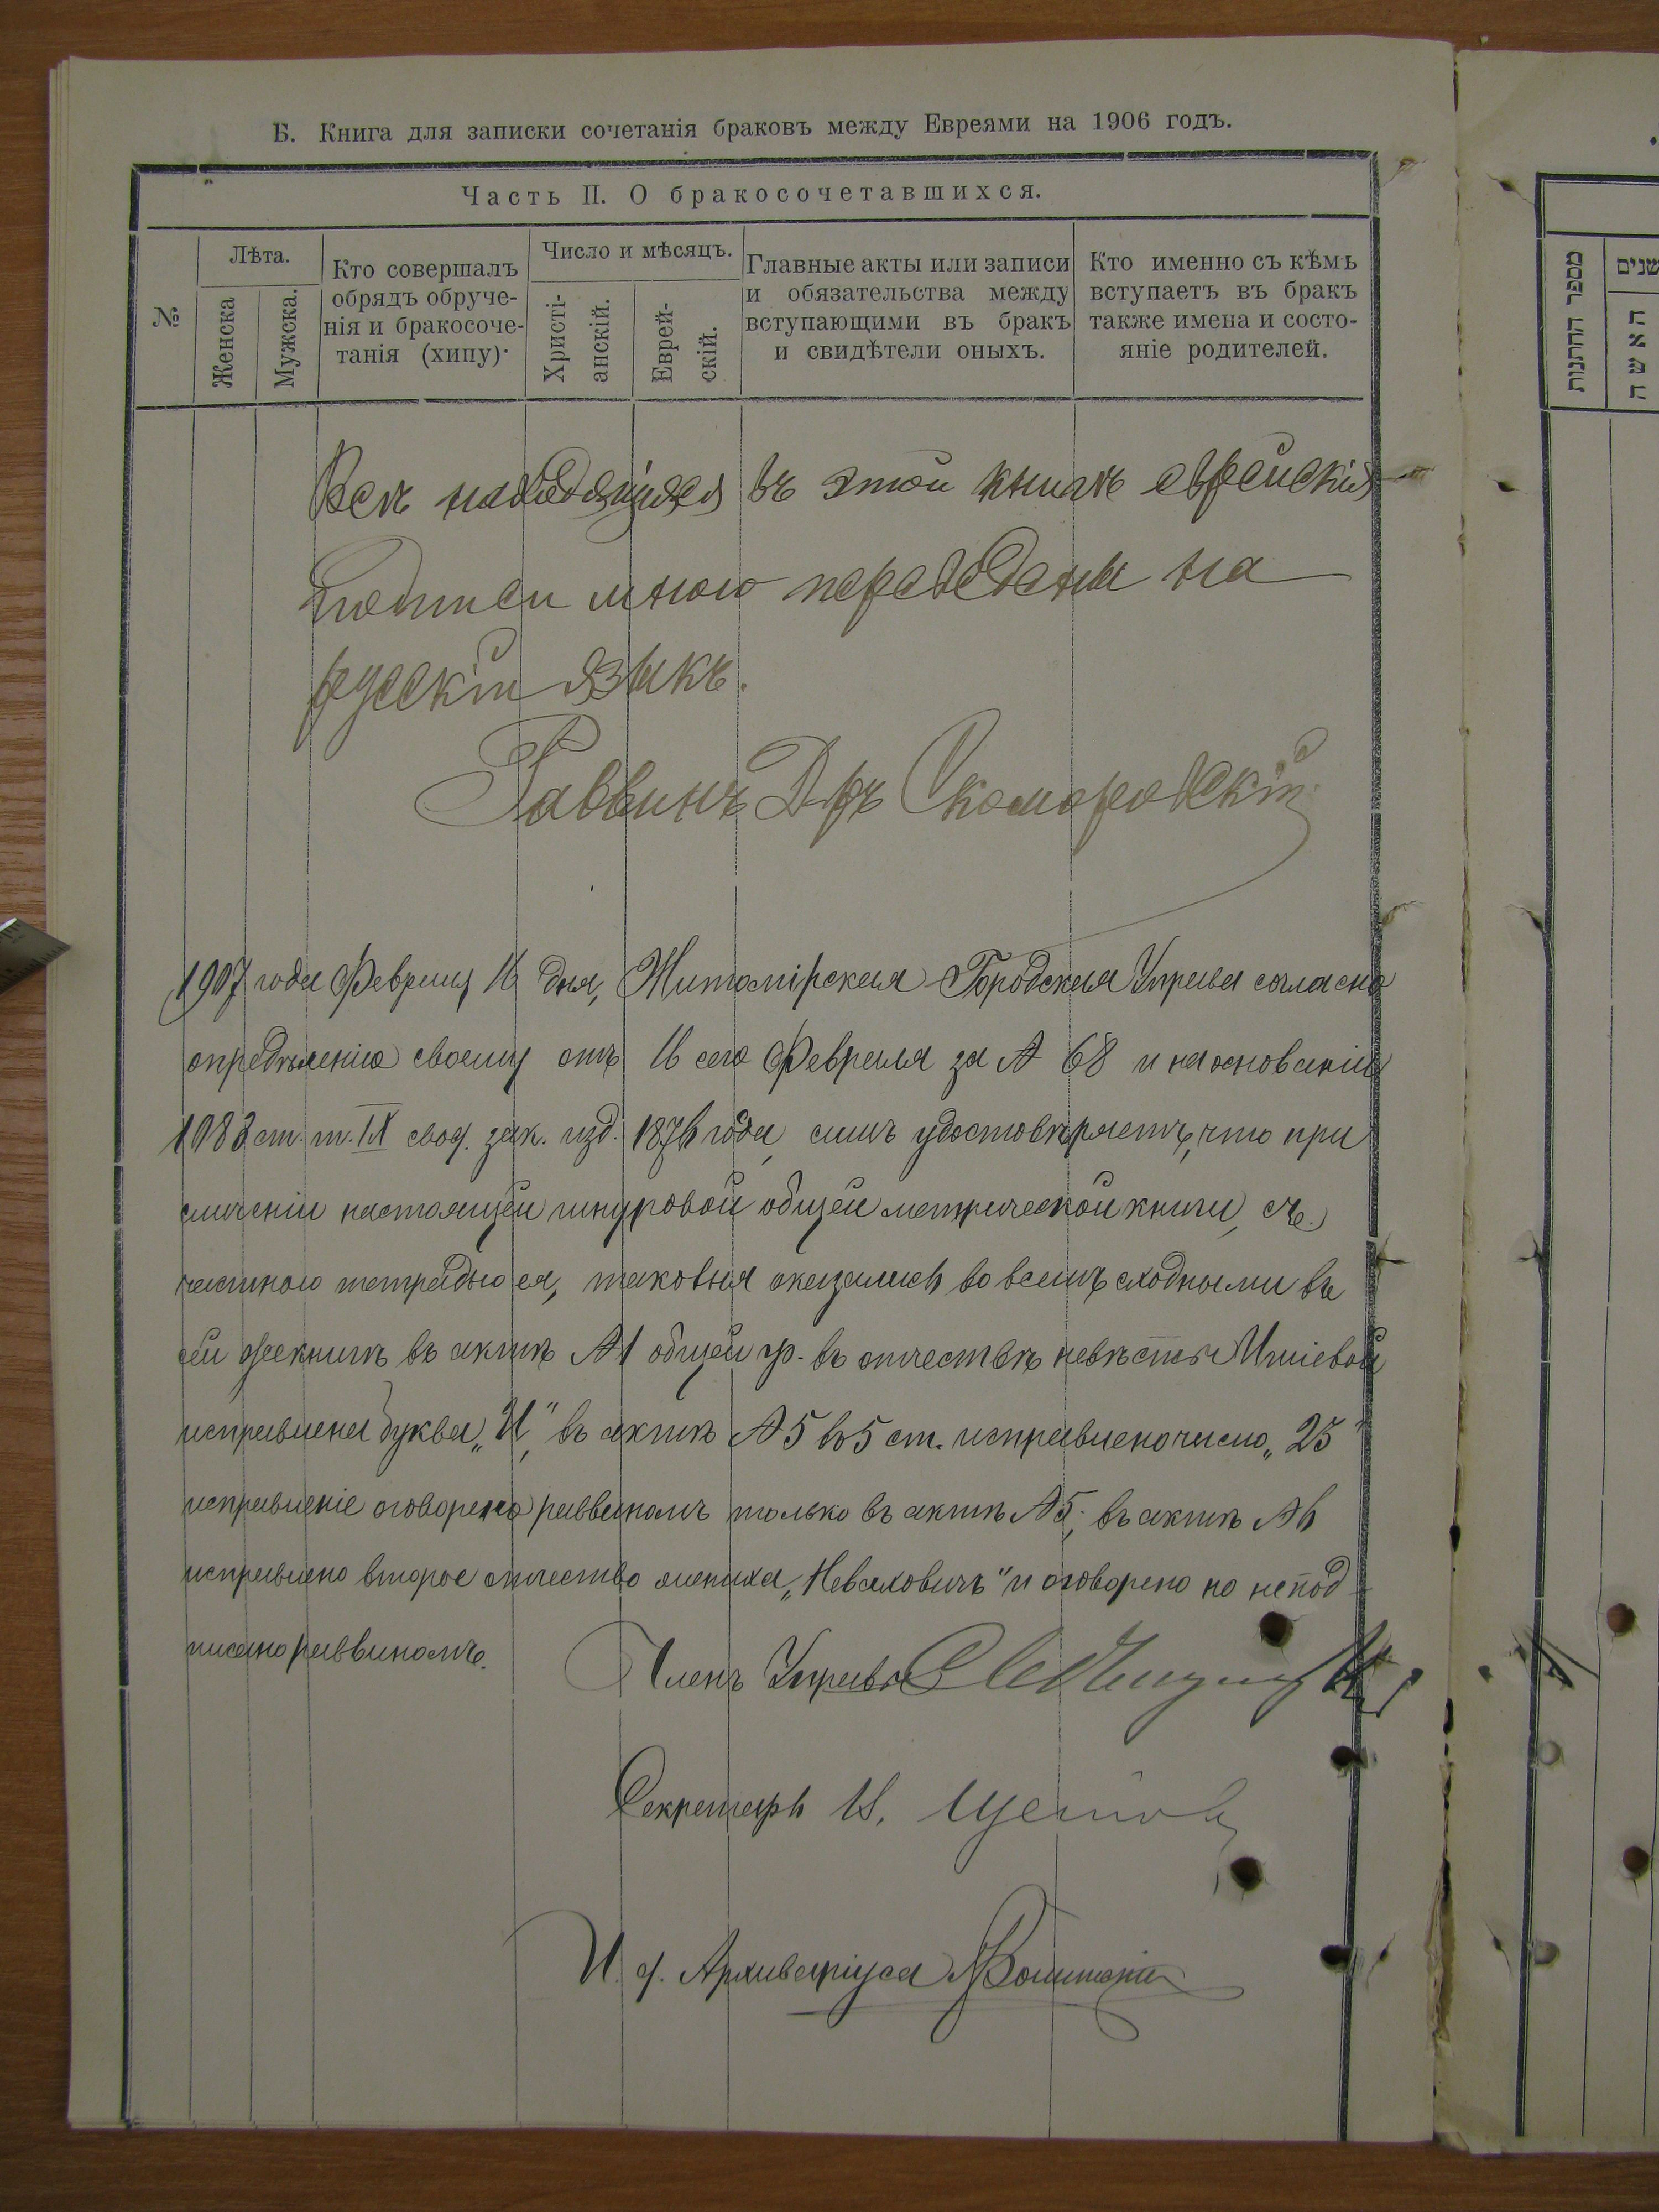 Б. Книга для записки сочетанія браковъ между Евреями на 1906 годъ.
Часть II. О бракосочетавшихся.
№
Лѣта.
Женска
Мужска.
Кто совершалъ
обрядъ обруче-
нія и бракосоче-
танія (хипу).
Число и мѣсяцъ.
Христі-
анскій.
Еврей-
скій.
Главные акты или записи
и обязательства между
вступающими въ бракъ
и свидѣтели оныхъ.
Кто именно съ кѣмъ
вступаетъ въ бракъ
также имена и состо-
яніе родителей.
Всѣ находящіяся въ этой книгѣ еврейскія
подписи мною переведены на
русскій языкъ.
Раввинъ Д-ръ Скомаровскій
1907 года Февраля 16 дня, Житомірская Городская Управа согласно
опредѣленію своему отъ 16 сего Февраля за № 68 и на основаніи
1083 ст. т. IX свод. зак. изд. 1876 года, симъ удостовѣряетъ, что при
сличеніи настоящей шнуровой общей метрической книги, съ
частною тетрадью ея, таковыя оказались во всемъ сходными въ
сей же книгѣ въ актѣ №1 общей гр. въ отчествѣ невѣсты Ишіевой
исправлена буква „И", въ актѣ №5 въ 5 ст. исправлено число „25"
исправленіе оговорено раввиномъ только въ актѣ №5; въ актѣ №6
исправлено второе отчество жениха „Неваховичъ" и оговорено но не под-
писано раввиномъ.
Членъ Управы
Секретарь И.
И. д. Архиваріуса
מספר החתונות
שנים
האשה